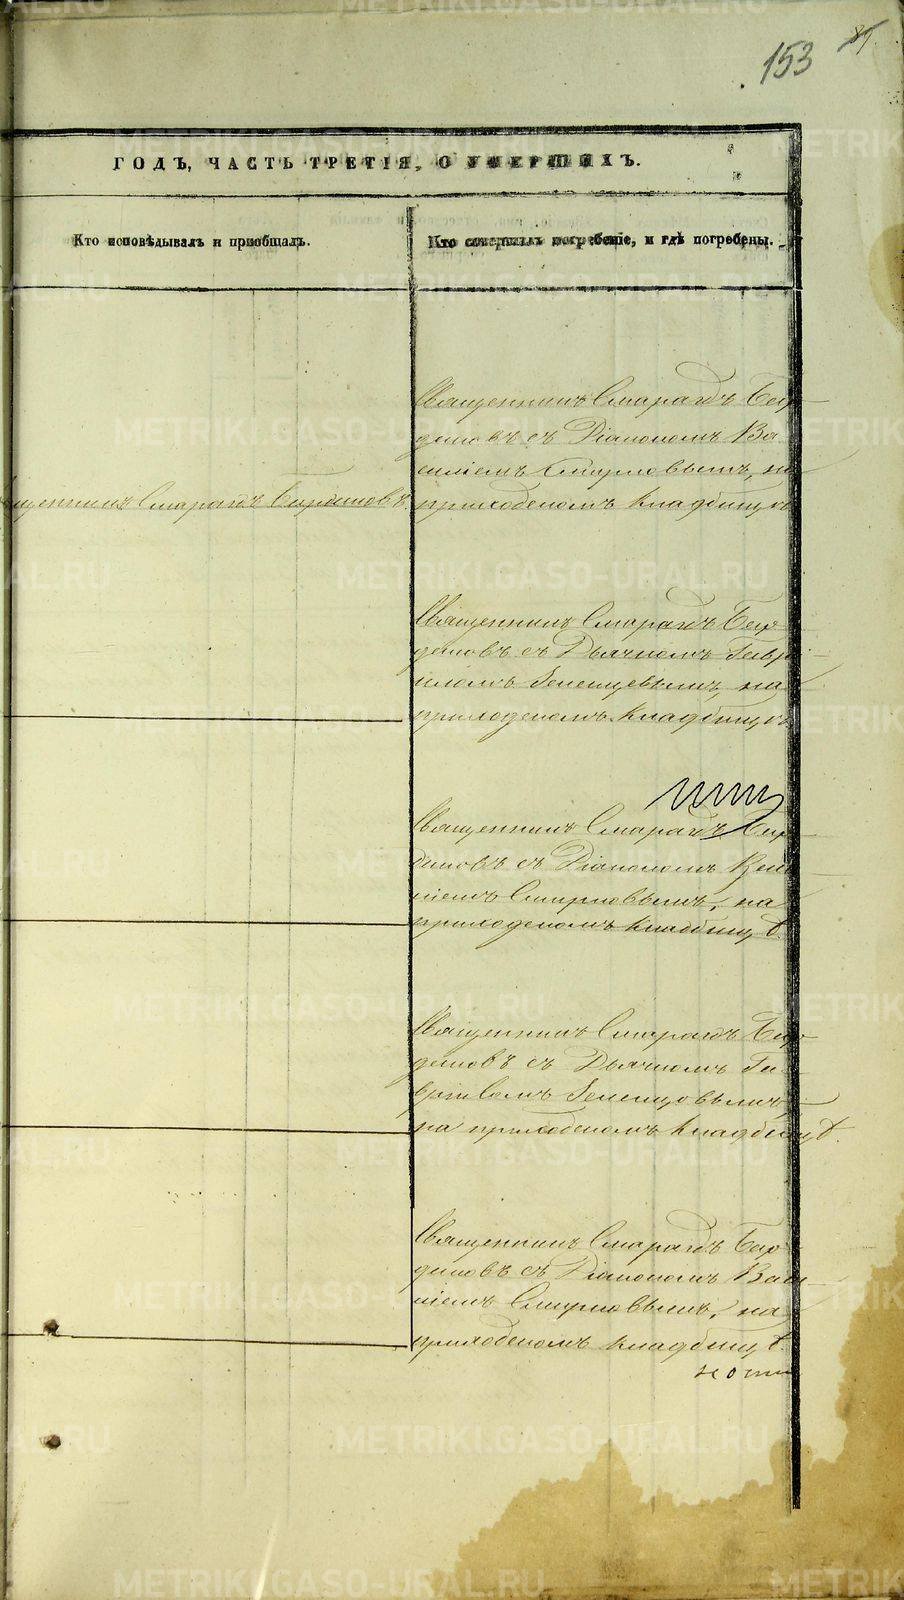 153
ГОДЪ, ЧАСТЬ ТРЕТІЯ, О УМЕРШИХЪ.
Кто исповѣдывалъ и пріобщалъ.
Кто совершалъ погребеніе, и гдѣ погребены.
Священникъ Смарагдъ
съ Діакономъ Ва
силіемъ Смирновымъ, на
приходскомъ кладбищѣ
Смарагдъ
Священникъ Смарагдъ
съ Дьячкомъ Гаврі
иломъ на
приходскомъ кладбищѣ
Священникъ Смарагдъ
съ Діакономъ Васи
ліемъ Смирновымъ, на
приходскомъ кладбищѣ.
Священникъ Смарагдъ
съ Дьячкомъ Га
вріиломъ
на приходскомъ кладбищѣ.
Священникъ Смарагдъ
съ Діакономъ Васи
ліемъ Смирновымъ, на
приходскомъ кладбищѣ.
METRIKI.GASO-URAL.RU